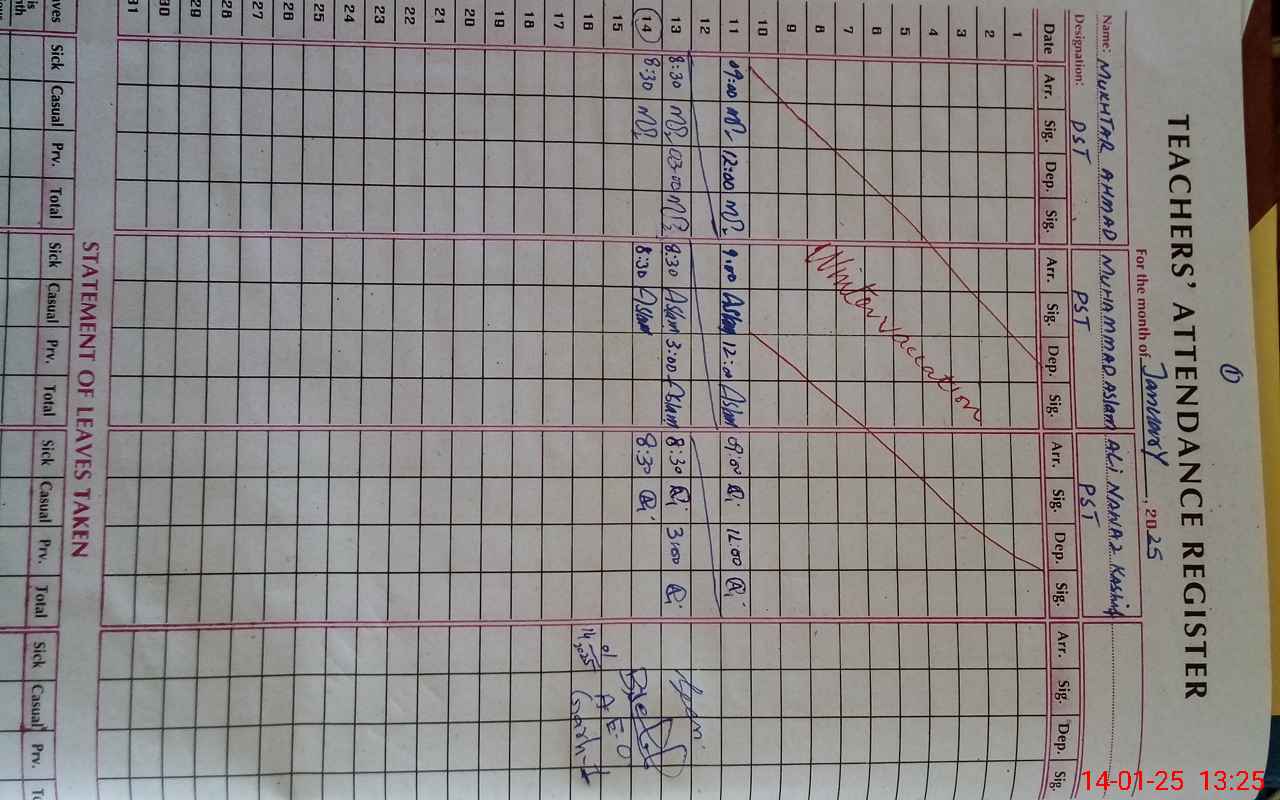 ①
TEACHERS' ATTENDANCE REGISTER
For the month of January, 2025
Name: MUKHTAR AHMAD MUHAMMAD Aslam ALI NAWAZ Kashif
Designation: PST PST PST
Date Arr. Sig. Dep. Sig. Arr. Sig. Dep. Sig. Arr. Sig. Dep. Sig. Arr. Sig. Dep. Sig.
1
2
3
4
5
6
7
8
9
10
Winter vaccation
11 09:00 12:00 9:00 Aslam 12:00 Aslam 09:00 12:00
12
13 8:30 03:00 8:30 Aslam 3:00 Aslam 8:30 3:00
14 8:30 8:30 Aslam 8:30
15
16
A.E.O
14-1-25
17
18
19
20
21
22
23
24
25
26
27
28
29
30
31
STATEMENT OF LEAVES TAKEN
Sick Casual Prv. Total Sick Casual Prv. Total Sick Casual Prv. Total Sick Casual Prv.
14-01-25 13:25